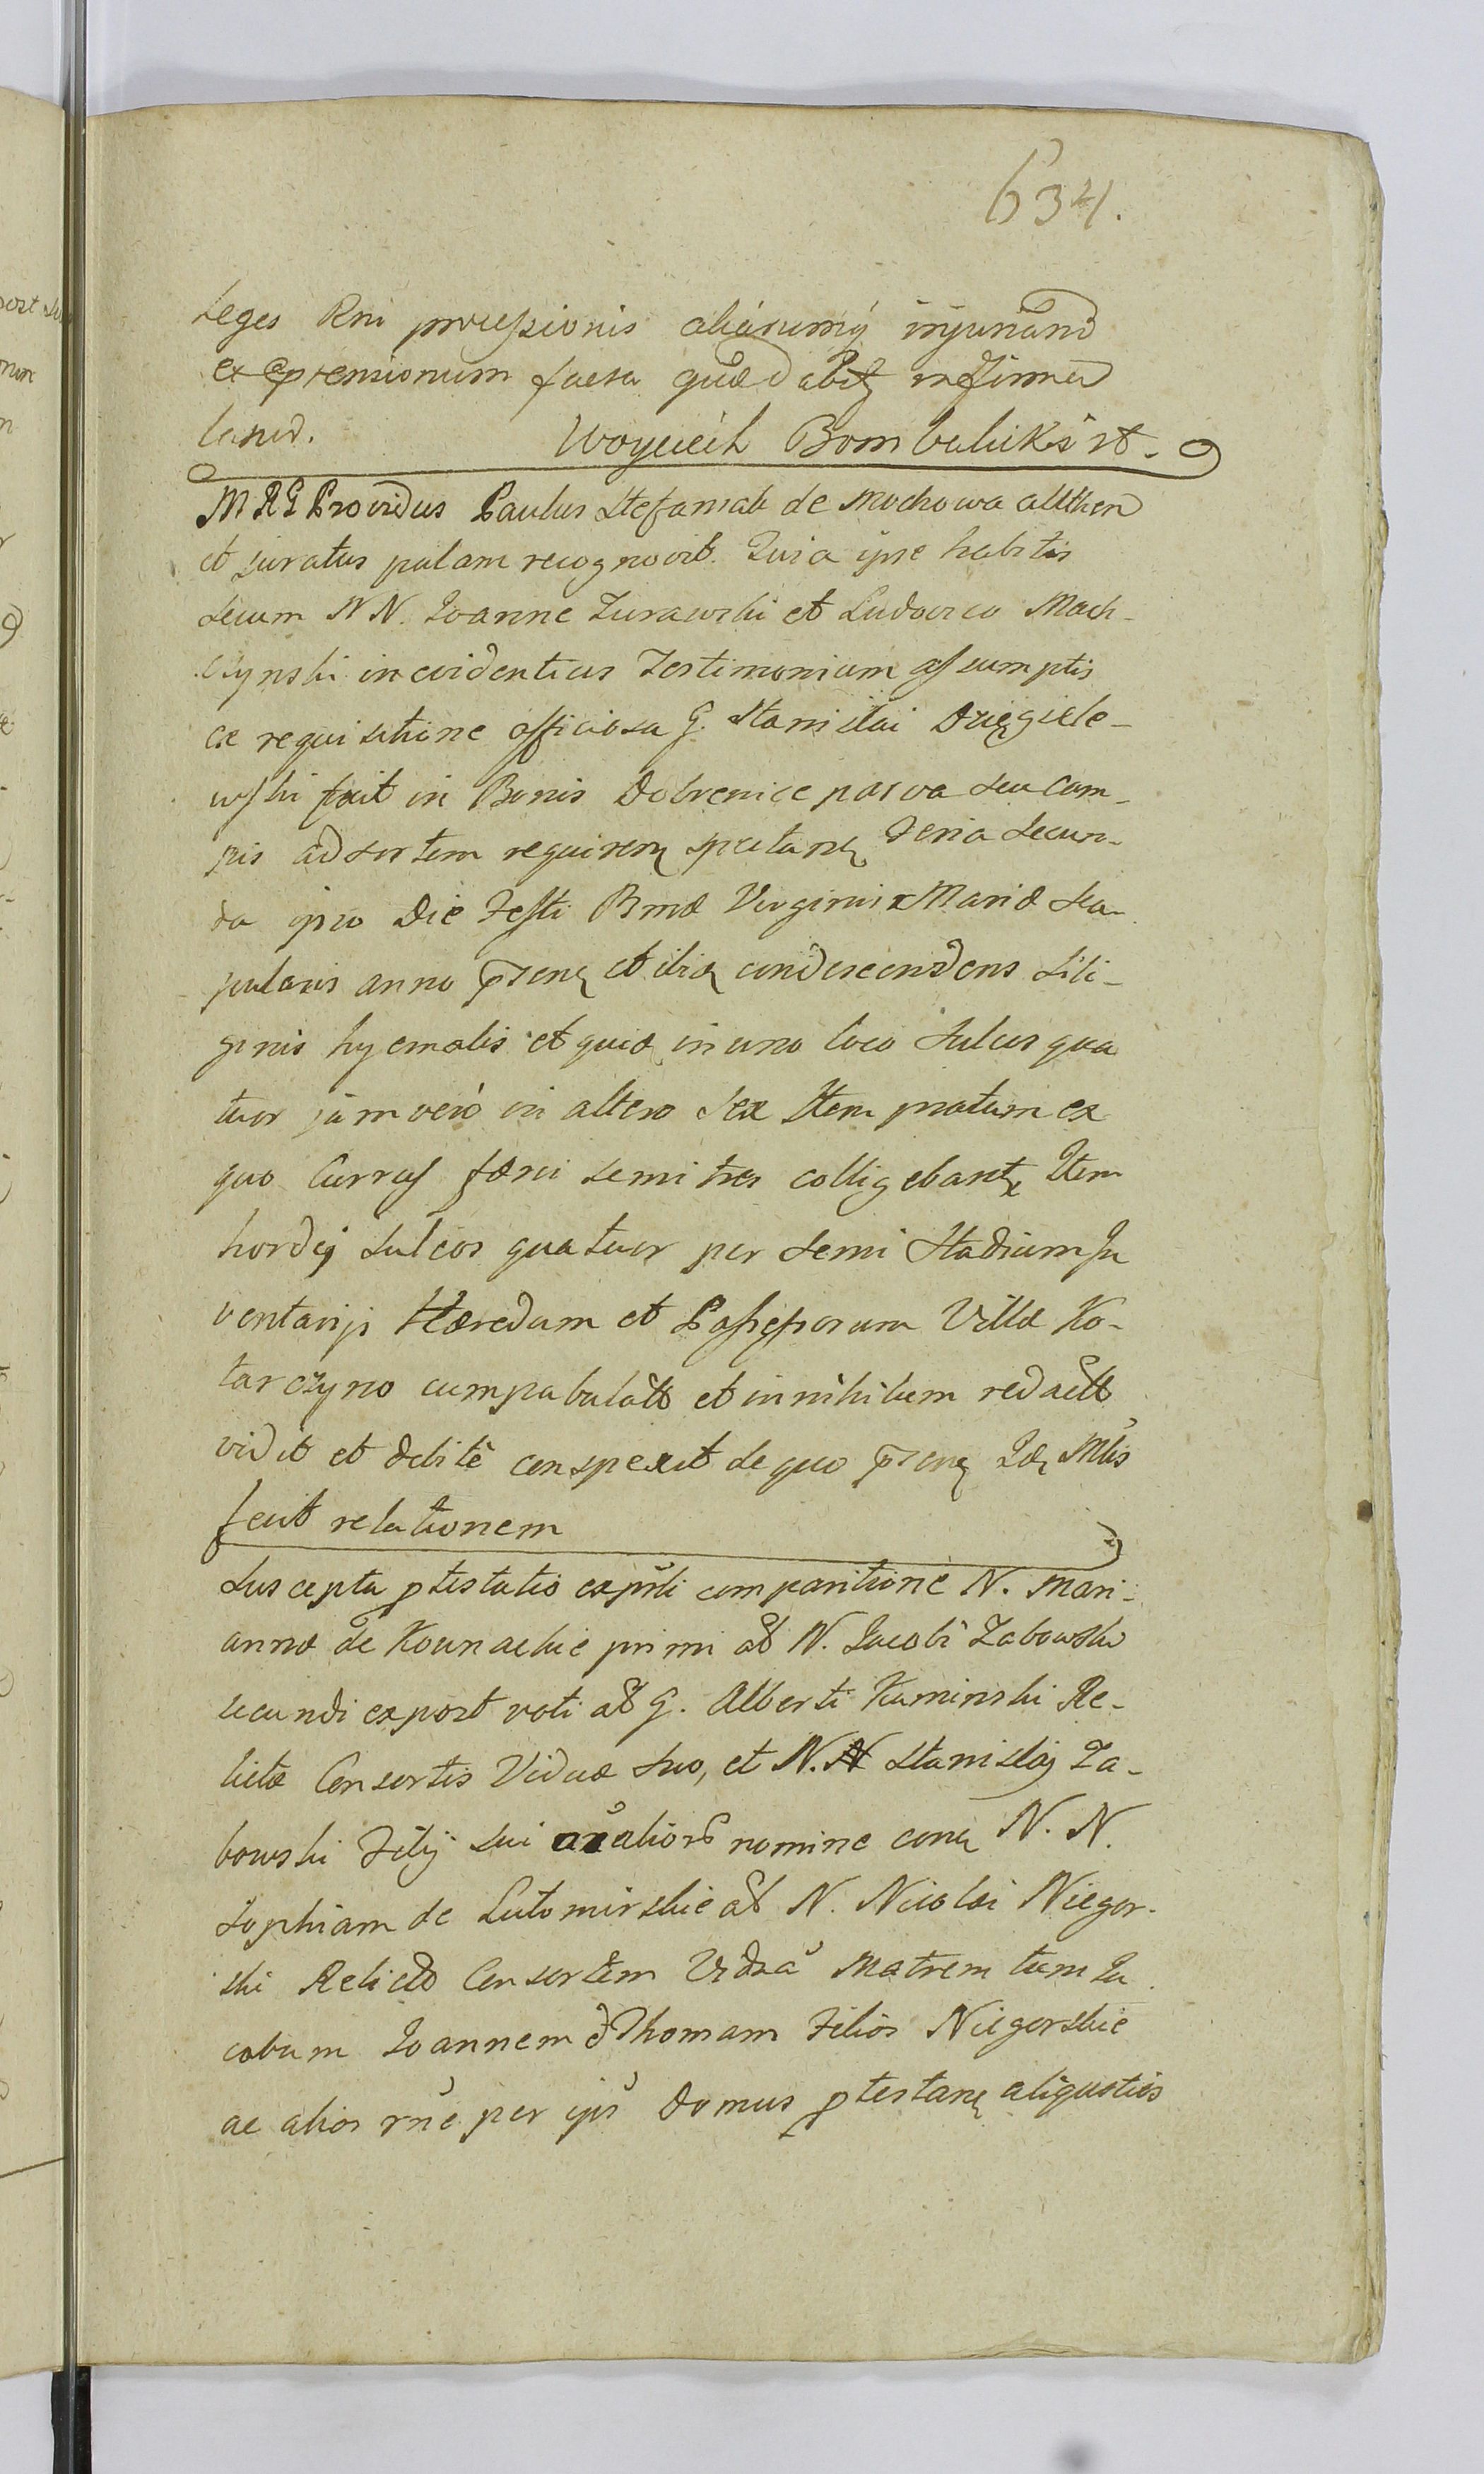 634.
Leges Rni processionis aliarumq injuriand
et eptensionum facta quæd abitz infirma
land. Woyciech Bombalicki st.
MRG Providus Paulus Stefaniak de Mochowa autthen
et juratus palam recognovit. Quia ipse habitis
secum NN. Joanne Zurawski et Ludovico Mach-
czynski in evidentius Testimonium assumptis
ex requisitione officiosa G. Stanislai Dzięgiele-
wski fuit in Bonis Dobrenice parva seu Cam-
pis ad sortem requiren spectan Feria Secun-
da ipso Die Festi Bmæ Virginis Mariæ Sca-
pularis anno psen et ibiq condescendens Sili-
ginis hyemalis et quid in uno loco Sulcus qua
tuor jam vero in altero sex Item pratum ex
quo Currus fæni semi tres colligebant Item
hordej sulcos quatuor per semi Stadium In
ventarijs Hæredum et Possessorum Villæ Ko-
tarczyno cumpabulatt et in nihilum redactt
vidit et debitè conspexit de quo psen Id Mlis
fecit relationem
Suscepta ptestatio expsli comparitione N. Mari-
annæ de Kownackie primi ad N. Jacobi Zabowski
secundi expost voti ad G. Alberti Kaminski Re-
lictæ Consortis Viduæ suo, et N. Stanislaj Za-
bowski Filij sui aliors nomine con N. N.
Sophiam de Lutomirskie ad N. Nicolai Niegor-
ski Relictd Consortem Viduã Matrem tum Ja
cobum Joannem & Thomam Filios Niegorskie
ac alios rne per ips domus ptestan aliquoties